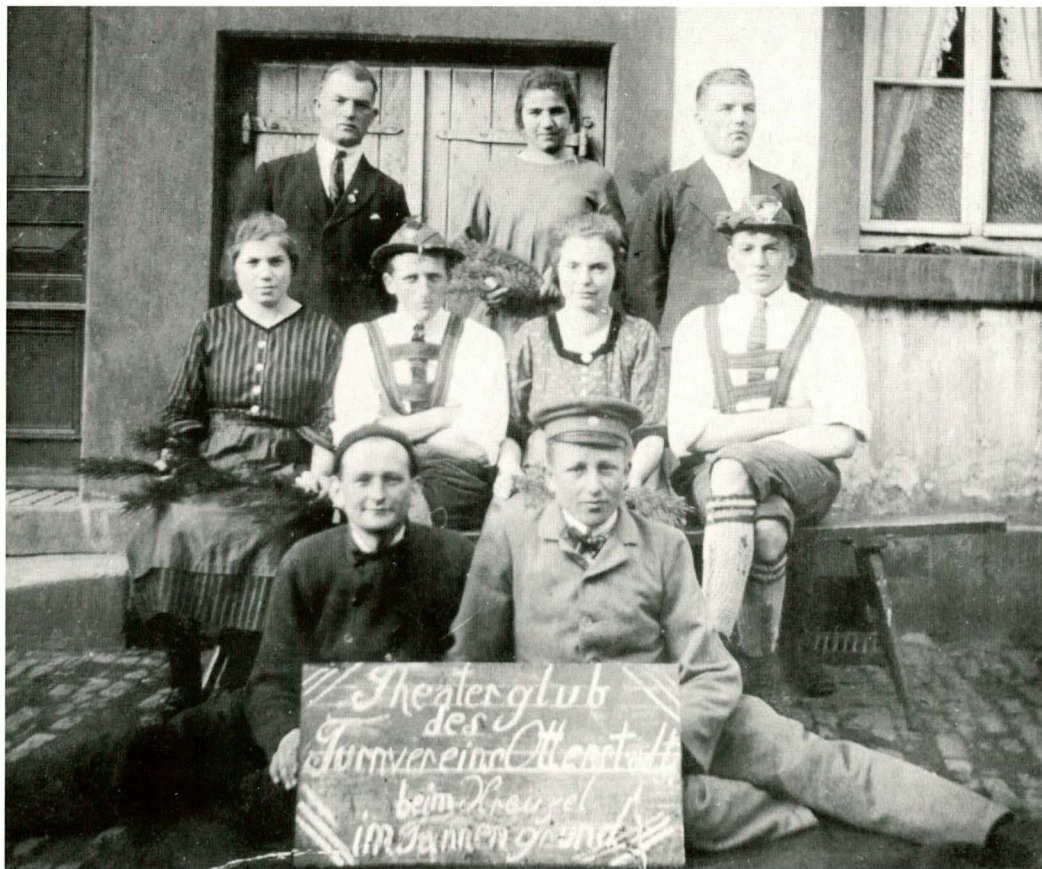 Theaterglub
des
Turnvereins Otterstadt
beim Kreuzel
im Tannengrund